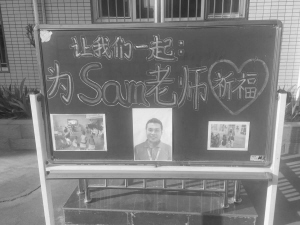 让我们一起:
为Sam老师祈福